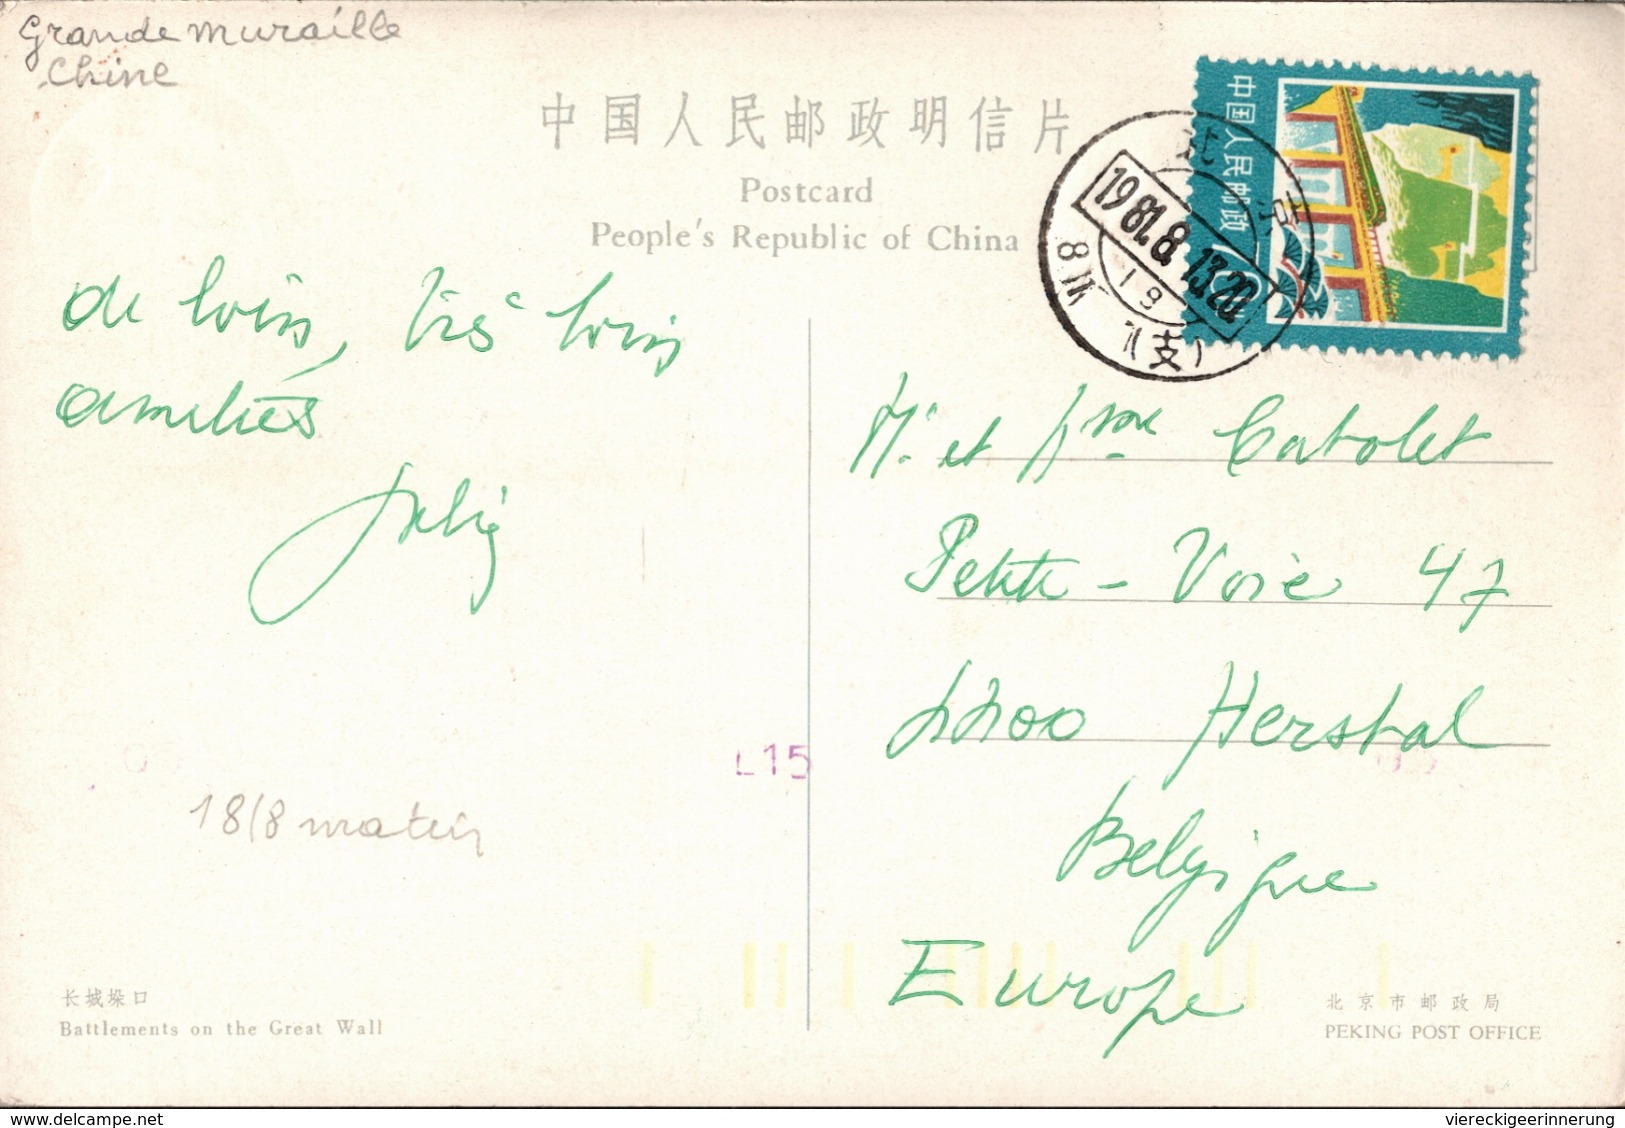 Grande muraille
Chine
中国人民邮政明信片
Postcard
People's Republic of China
中国人民邮政
北京
1981.8.13.20
de loin, très loin
amitiés
M. et Mme Cabolet
Petite-Voie 47
4400 Herstal
Belgique
Europe
L15
18/8 matin
长城垛口
Battlements on the Great Wall
北京市邮政局
PEKING POST OFFICE
www.delcampe.net
viereckigeerinnerung